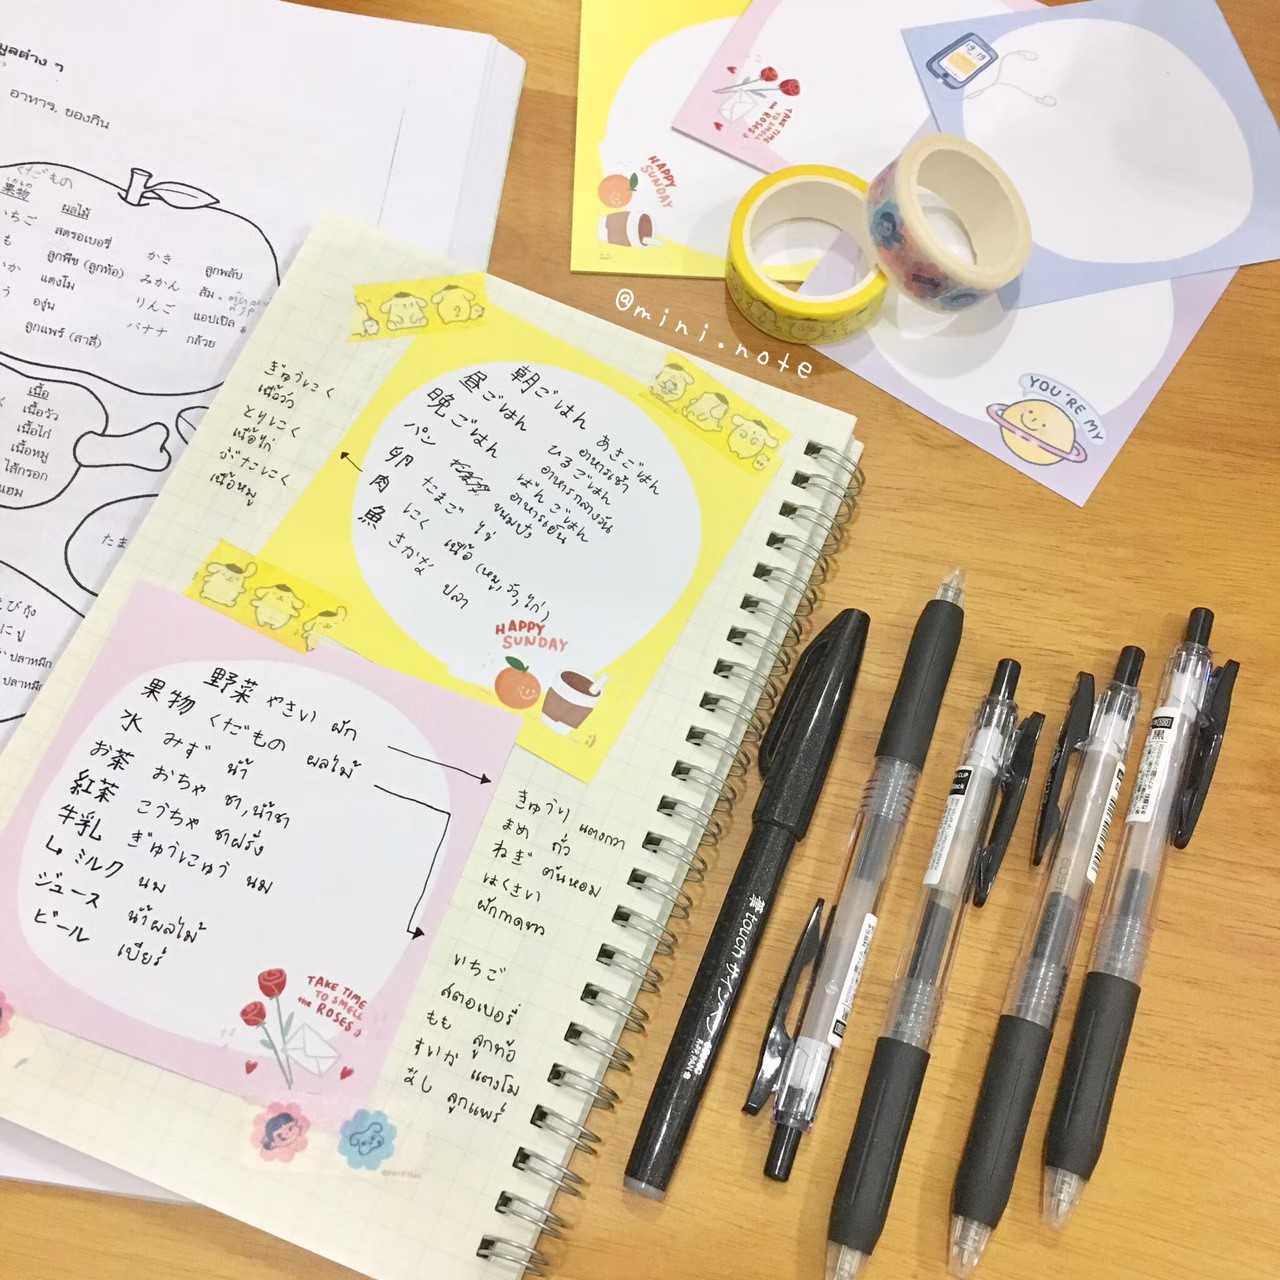 มูลต่าง ๆ
อาหาร, ของกิน
くだもの
果物 ผลไม้
いちご สตรอเบอรี่ かき ลูกพลับ
も ลูกพีช (ลูกท้อ) みかん ส้ม
か แตงโม りんご แอปเปิล
う องุ่น バナナ กล้วย
ลูกแพร์ (สาลี่)
เนื้อ
เนื้อวัว
เนื้อไก่
เนื้อหมู
ไส้กรอก
แฮม
たま
えび กุ้ง
に ปู
ปลาหมึก
ปลาหมึก
ぎゅうにく
เนื้อวัว
とりにく
เนื้อไก่
ぶたにく
เนื้อหมู
朝ごはん あさごはん
อาหารเช้า
昼ごはん ひるごはん
อาหารกลางวัน
晩ごはん ばんごはん
อาหารเย็น
パン ขนมปัง
卵 たまご ไข่
肉 にく เนื้อ (หมู, วัว, ไก่)
魚 さかな ปลา
HAPPY
SUNDAY
野菜 やさい ผัก
果物 くだもの ผลไม้
水 みず น้ำ
お茶 おちゃ ชา, น้ำชา
紅茶 こうちゃ ชาฝรั่ง
牛乳 ぎゅうにゅう นม
↳ ミルク นม
ジュース น้ำผลไม้
ビール เบียร์
TAKE TIME
TO SMELL
THE ROSES
きゅうり แตงกวา
まめ ถั่ว
ねぎ ต้นหอม
はくさい
ผักกาดขาว
いちご
สตอเบอรี่
もも ลูกท้อ
すいか แตงโม
なし ลูกแพร์
HAPPY
SUNDAY
TAKE TIME
TO SMELL
THE ROSES
19 19
YOU'RE MY
@mini.note
touch サインペン
CLIP
黒